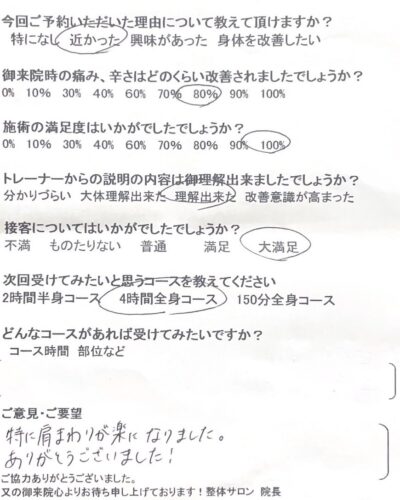 今回ご予約いただいた理由について教えて頂けますか？
特になし 近かった 興味があった 身体を改善したい
御来院時の痛み、辛さはどのくらい改善されましたでしょうか？
0% 10% 30% 40% 60% 70% 80% 90% 100%
施術の満足度はいかがでしたでしょうか？
0% 10% 30% 40% 60% 70% 80% 90% 100%
トレーナーからの説明の内容は御理解出来ましたでしょうか？
分かりづらい 大体理解出来た 理解出来た 改善意識が高まった
接客についてはいかがでしたでしょうか？
不満 ものたりない 普通 満足 大満足
次回受けてみたいと思うコースを教えてください
2時間半身コース 4時間全身コース 150分全身コース
どんなコースがあれば受けてみたいですか？
コース時間 部位など
ご意見・ご要望
特に肩まわりが楽になりました。
ありがとうございました！
ご協力ありがとうございました。
又の御来院心よりお待ち申し上げております！整体サロン 院長